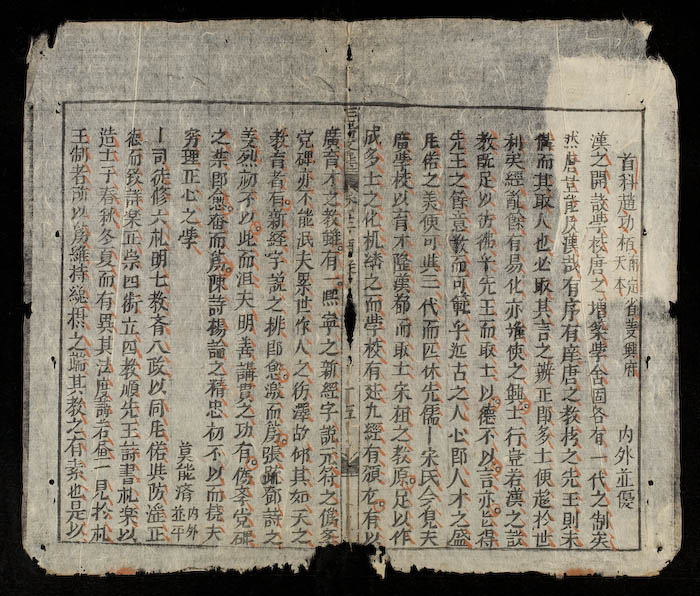 首科趙功栢 南定省麦興府 天本 内外並優
漢之開設學校唐之增築學舍固各有一代之制矣
然唐豈足以漢哉有序有庠唐之教考之先王則未
備而其取人也必取其言之辨正即多士便趨於世
利矣經亂餘有易化亦難使之興士行豈若漢之設
教既足以彷彿乎先王而取士以德不以言亦皆得
先王之餘意教而可範乎近古之人心即人才之盛
風俗之美便可與三代而四休先儒宋民今見夫
廣學校以育才隆漢都而取士宋祖之教原足以作
成多士之化机緒之而學校有延九經有頒尤有以
廣育才之教雖有熙寧之新經字說元符之僞
党碑亦不能泯夫累世作人之彷澤故何其如天之
教育者有新經字說之排即愈激而篤張疏鄧詩之
姜烈初不以此而沮天明善講貫之功有傷党碑
之禁即愈奮而篤陳詩楊論之精忠初不以而撓夫
窮理正心之學
莫能濟 内外並平
司徒修六礼明七教斉八政以同風俗與防淫正
德而致詳楽正崇四術立四教順先王詩書礼楽以
造士于春秋冬夏而有異其法度壽者奩一見於礼
王制者所以篤維持統摂之端其教之有素也是以